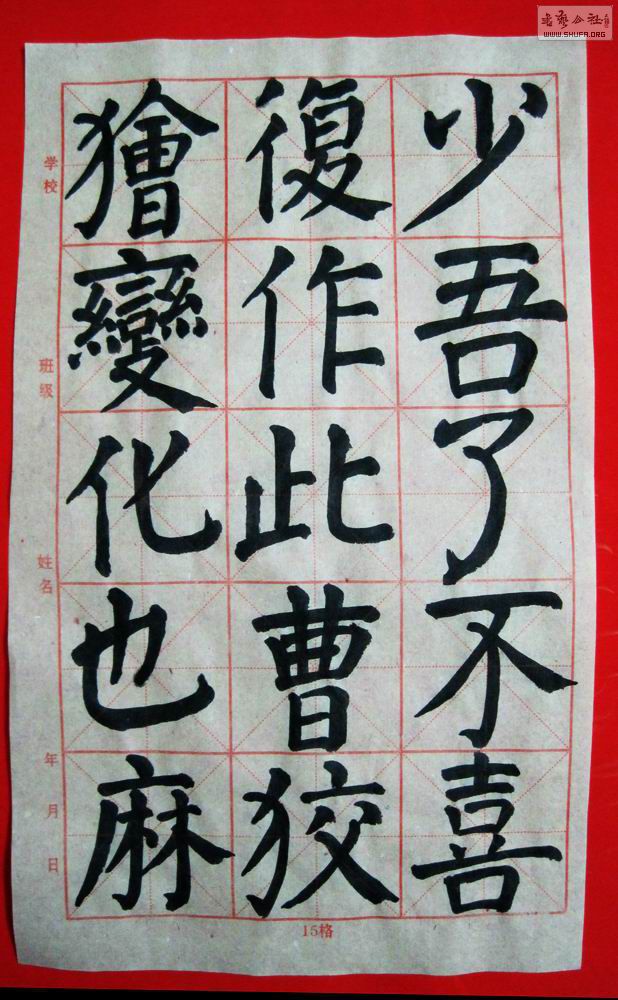 少吾了不喜
復作此曹狡
獪變化也麻
学校
班级
姓名
年月日
15格
书艺公社
WWW.SHUFA.ORG